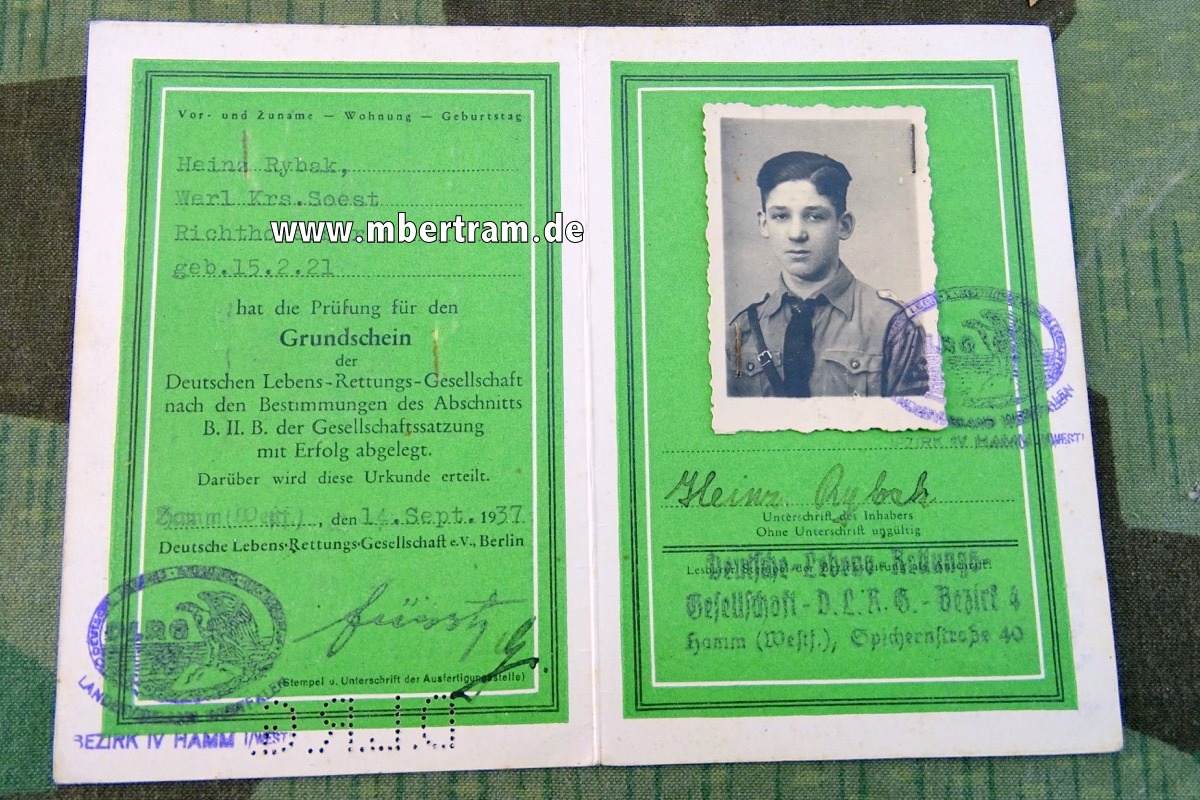 Vor- und Zuname — Wohnung — Geburtstag
Heinz Rybak,
Werl Krs.Soest
www.mbertram.de
geb.15.2.21
hat die Prüfung für den
Grundschein
der
Deutschen Lebens-Rettungs-Gesellschaft
nach den Bestimmungen des Abschnitts
B. II. B. der Gesellschaftssatzung
mit Erfolg abgelegt.
Darüber wird diese Urkunde erteilt.
Hamm(Westf.), den 14.Sept. 1937
Deutsche Lebens-Rettungs-Gesellschaft e.V., Berlin
(Stempel u. Unterschrift der Ausfertigungsstelle)
DLRG
BEZIRK IV HAMM (WEST)
DLRG
BEZIRK IV HAMM (WEST)
Heinz Rybak
Unterschrift des Inhabers
Ohne Unterschrift ungültig
Deutsche Lebens-Rettungs-
Gesellschaft - D.L.R.G. - Bezirk 4
Hamm (Westf.), Spichernstraße 40